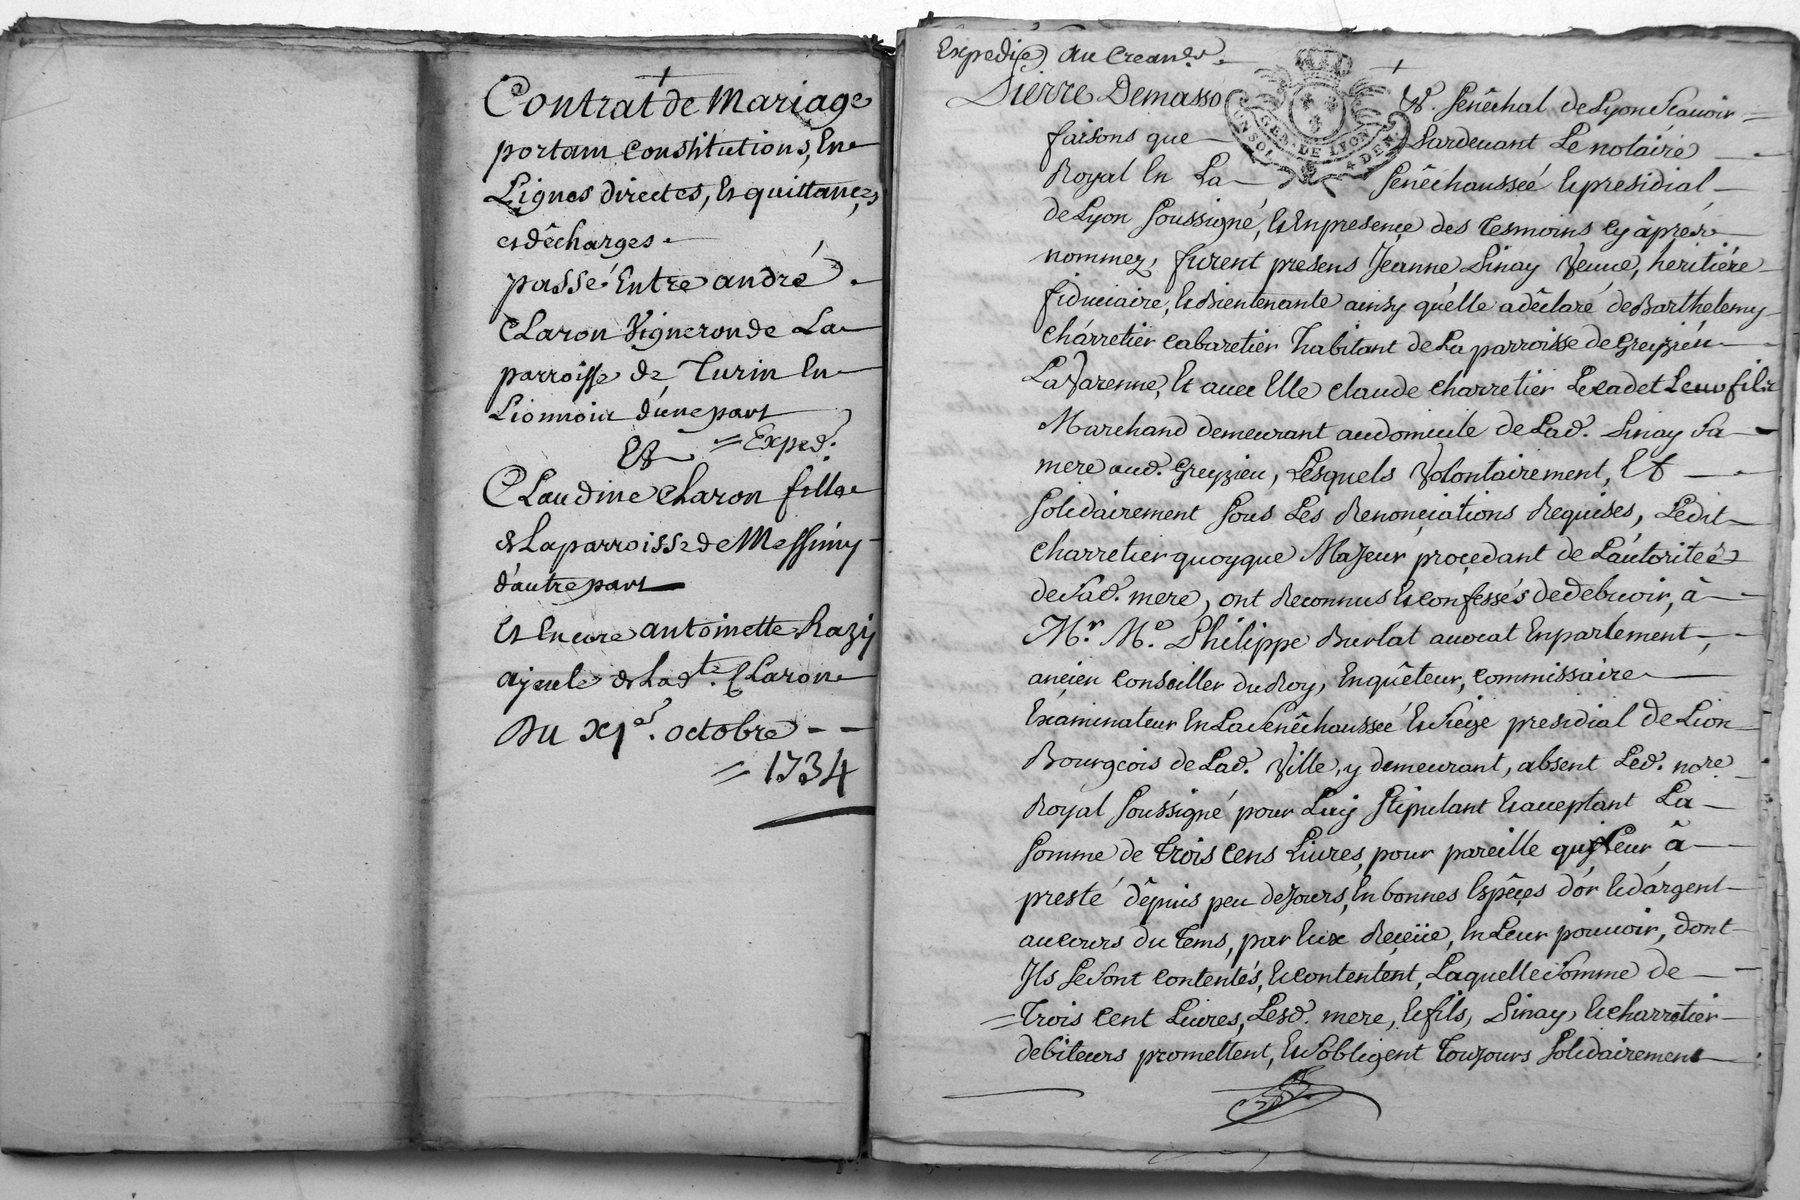 Contrat de Mariage
portant constitutions, En
Lignes directes, Et quittances
et dêcharges.
passé Entre andré
CLaron Vigneron de La
parroisse de Turin En
Lionnois d'une part
Et = Exped.
CLaudine charon fille
de La parroisse de Messimy
d'autre part
Et Encore antoinette Razy
ayeule de Lad.te CLaron
Du XI.e octobre - -
= 1734
Expedié au Crean.r
Pierre Demasso Et. Senêchal de Lyon Scavoir
GEN. DE LYON
faisons que Pardevant Le notaire
Royal En La Senêchausseé Et presidial
de Lyon soussigné, Et En presence des Tesmoins cy âprés
nommez, furent presens Jeanne Pinay Veuve, heritiére
fiduciaire, Et Bientenante ainsy qu'elle a dêclaré de Barthelemy
charretier cabaretier habitant de La parroisse de Greyzieu
La Varenne, Et avec Elle claude charretier Le cadet Leur fils
Marchand demeurant au domicile de Lad. Pinay sa
mere aud. Greyzieu, Lesquels Volontairement, Et
solidairement sous Les Renonciations Requises, Ledit
charretier quoyque Majeur, procedant de L'autoriteé
de sad. mere, ont Reconnus Et confessés de debvoir, â
M.r M.e Philippe Burlat avocat En parlement,
ancien conseiller du Roy, Enquêteur, commissaire
Examinateur En La Senêchausseé Et Siége presidial de Lion
Bourgeois de Lad. Ville, y demeurant, absent Led. no.re
Royal soussigné pour Luy stipulant Et acceptant La
somme de Trois cens Livres, pour pareille qu'il Leur â
presté dêpuis peu de Jours, En bonnes Espêces d'or Et d'argent
au cours du Tems, par Eux Reçeüe, En Leur pouvoir, dont
Ils se sont contentés, Et contentent, Laquelle somme de
= Trois cent Livres, Lesd. mere, Et fils, Pinay, Et charretier
debiteurs promettent, Et s'obligent Toujours solidairement